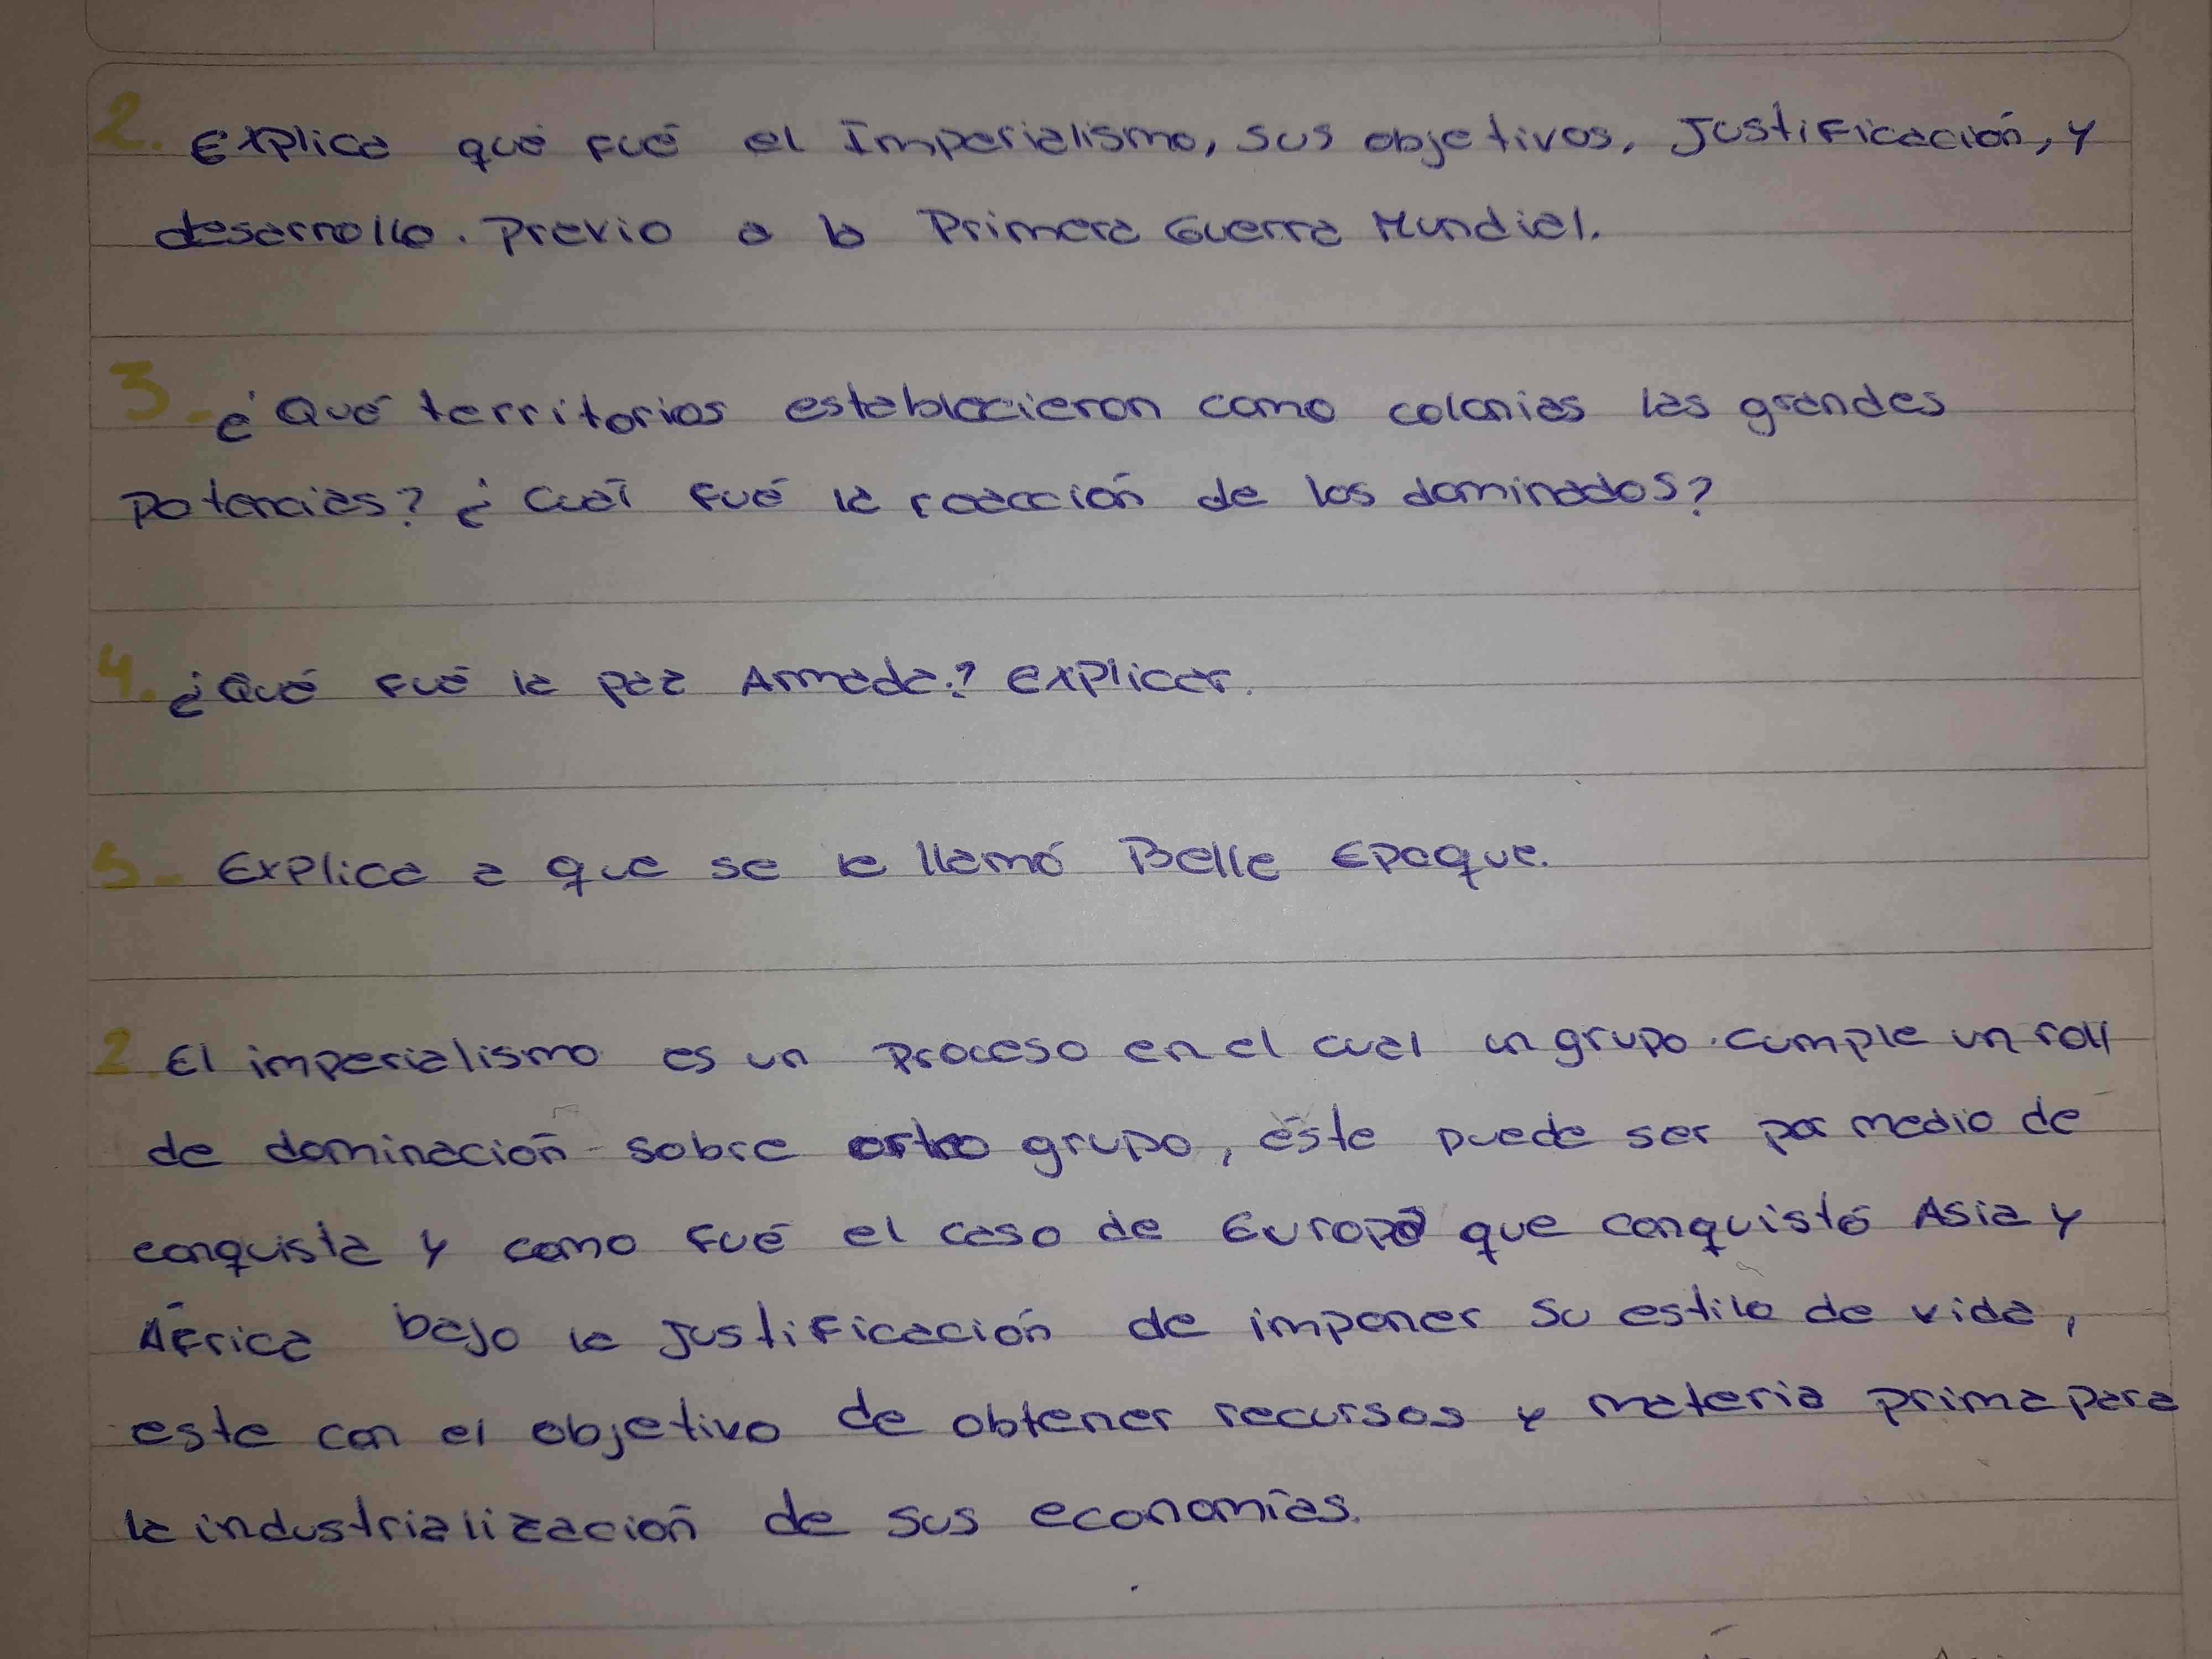 2. Explica qué fué el Imperialismo, sus objetivos, Justificación, y
desarrollo. Previo a la Primera Guerra Mundial.
3- ¿Qué territorios establecieron como colonias las grandes
potencias? ¿Cuál fué la reacción de los dominados?
4. ¿Qué fué la paz Armada? explicar.
5- Explica a que se le llamó Belle Epoque.
2. El imperialismo es un proceso en el cual un grupo cumple un roll
de dominación sobre otro grupo, éste puede ser por medio de
conquista y como fué el caso de Europa que conquistó Asia y
África bajo la justificación de imponer su estilo de vida,
este con el objetivo de obtener recursos y materia prima para
la industrialización de sus economías.